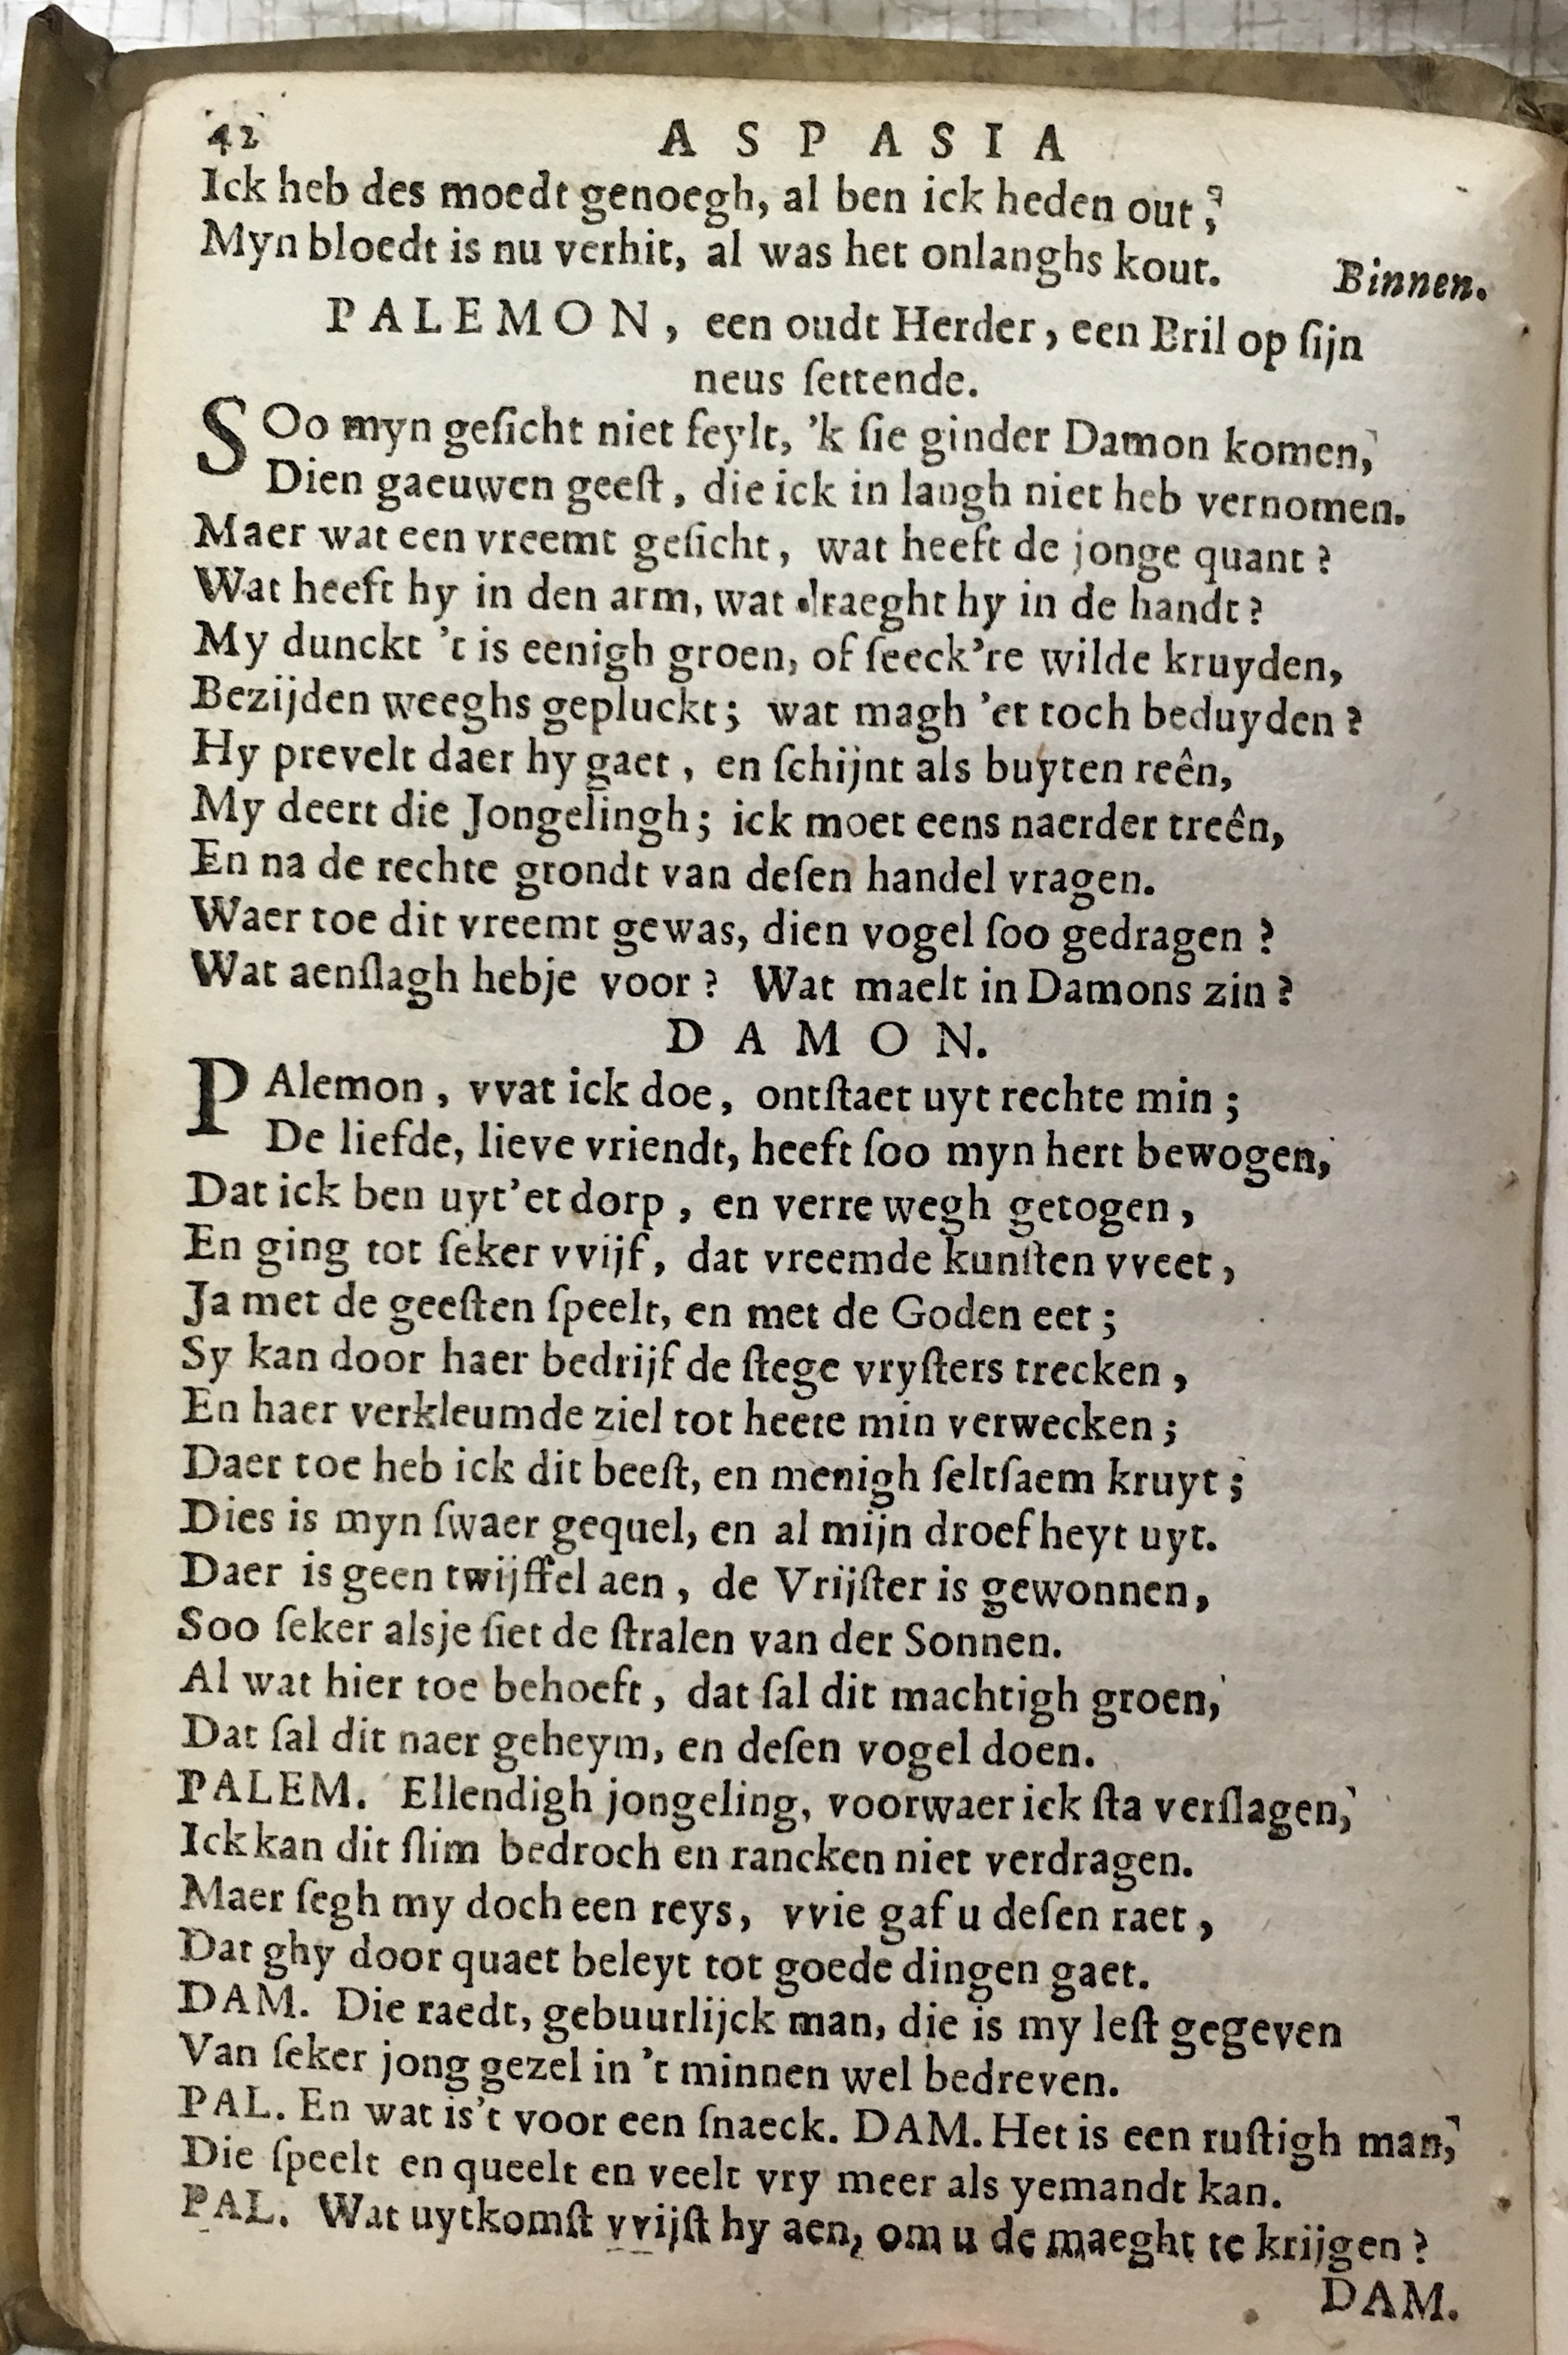 42
ASPASIA
Ick heb des moedt genoegh, al ben ick heden out,
Myn bloedt is nu verhit, al was het onlanghs kout.
Binnen.
PALEMON, een oudt Herder, een Bril op ſijn
neus ſettende.
SOo myn geſicht niet feylt, 'k ſie ginder Damon komen,
Dien gaeuwen geeſt, die ick in langh niet heb vernomen.
Maer wat een vreemt geſicht, wat heeft de jonge quant?
Wat heeft hy in den arm, wat draeght hy in de handt?
My dunckt 't is eenigh groen, of ſeeck're wilde kruyden,
Bezijden weeghs gepluckt; wat magh 'et toch beduyden?
Hy prevelt daer hy gaet, en ſchijnt als buyten reên,
My deert die Jongelingh; ick moet eens naerder treên,
En na de rechte grondt van deſen handel vragen.
Waer toe dit vreemt gewas, dien vogel ſoo gedragen?
Wat aenſlagh hebje voor? Wat maelt in Damons zin?
DAMON.
PAlemon, vvat ick doe, ontſtaet uyt rechte min;
De liefde, lieve vriendt, heeft ſoo myn hert bewogen,
Dat ick ben uyt'et dorp, en verre wegh getogen,
En ging tot ſeker vvijf, dat vreemde kunſten vveet,
Ja met de geeſten ſpeelt, en met de Goden eet;
Sy kan door haer bedrijf de ſtege vryſters trecken,
En haer verkleumde ziel tot heete min verwecken;
Daer toe heb ick dit beeſt, en menigh ſeltſaem kruyt;
Dies is myn ſwaer gequel, en al mijn droefheyt uyt.
Daer is geen twijffel aen, de Vrijſter is gewonnen,
Soo ſeker alsje ſiet de ſtralen van der Sonnen.
Al wat hier toe behoeft, dat ſal dit machtigh groen,
Dat ſal dit naer geheym, en deſen vogel doen.
PALEM. Ellendigh jongeling, voorwaer ick ſta verſlagen,
Ick kan dit ſlim bedroch en rancken niet verdragen.
Maer ſegh my doch een reys, vvie gaf u deſen raet,
Dat ghy door quaet beleyt tot goede dingen gaet.
DAM. Die raedt, gebuurlijck man, die is my leſt gegeven
Van ſeker jong gezel in 't minnen wel bedreven.
PAL. En wat is't voor een ſnaeck. DAM. Het is een ruſtigh man,
Die ſpeelt en queelt en veelt vry meer als yemandt kan.
PAL. Wat uytkomſt vvijſt hy aen, om u de maeght te krijgen?
DAM.